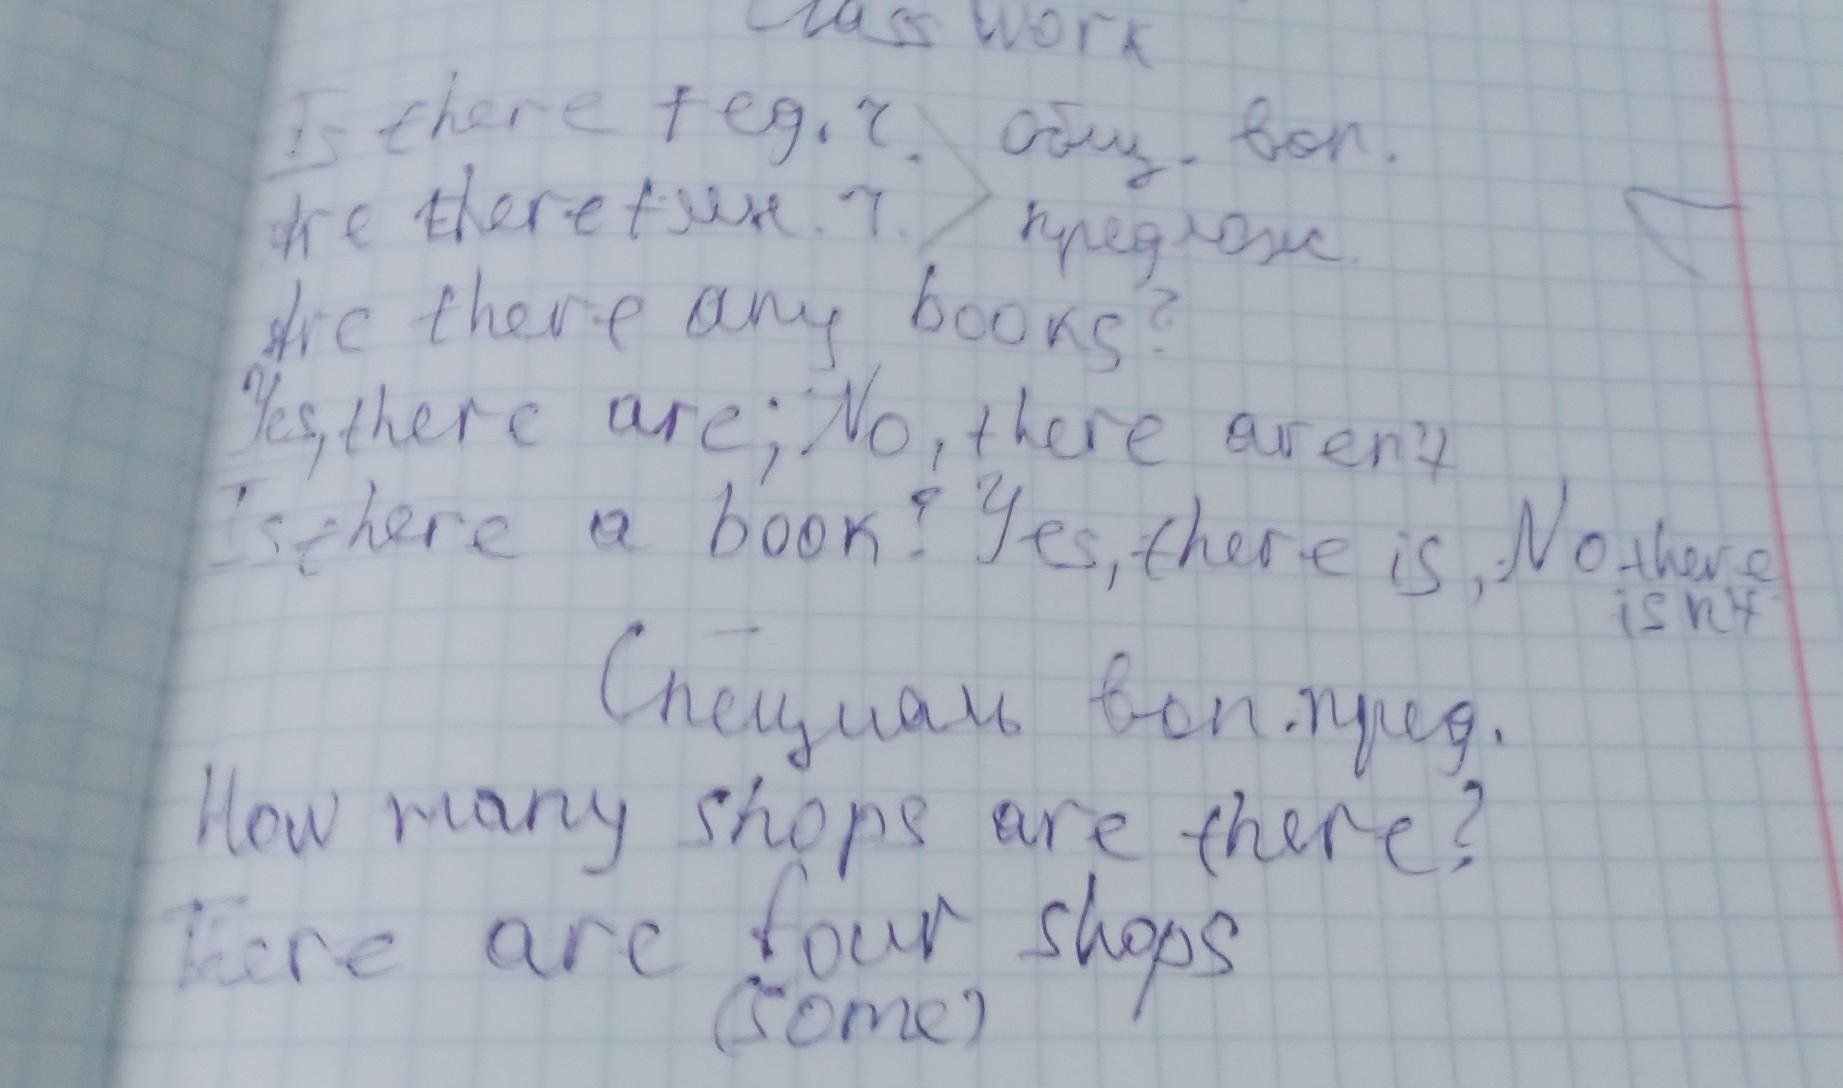 Class Work
Is there + ед. ч. общ. воп.
Are there + мн. ч. предлож.
Are there any books?
Yes, there are; No, there aren't
Is there a book? Yes, there is, No there
isn't
Специаль воп. пред.
How many shops are there?
There are four shops
(some)